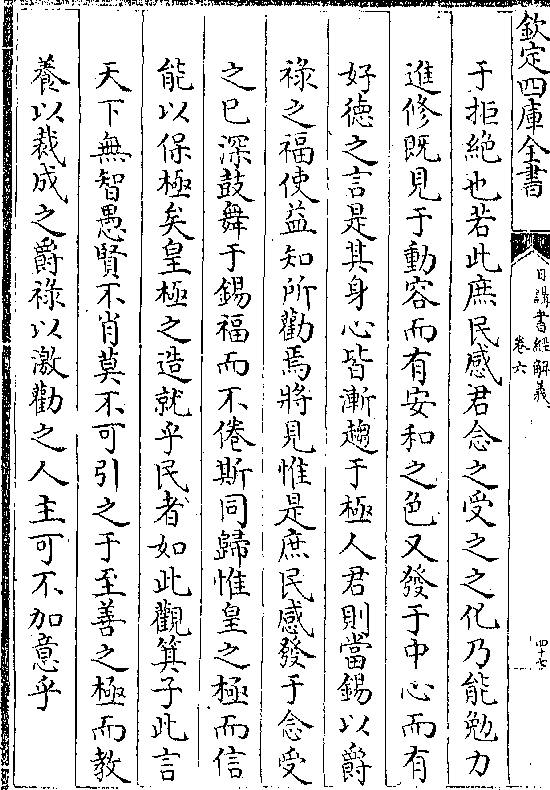 欽定四庫全書
日講書經解義
卷六
四十七
于拒絶也若此庶民感君念之受之之化乃能勉力
進修既見于動容而有安和之色又發于中心而有
好德之言是其身心皆漸趨于極人君則當錫以爵
祿之福使益知所勸焉將見惟是庶民感發于念受
之已深鼓舞于錫福而不倦斯同歸惟皇之極而信
能以保極矣皇極之造就乎民者如此觀箕子此言
天下無智愚賢不肖莫不可引之于至善之極而教
養以裁成之爵祿以激勸之人主可不加意乎